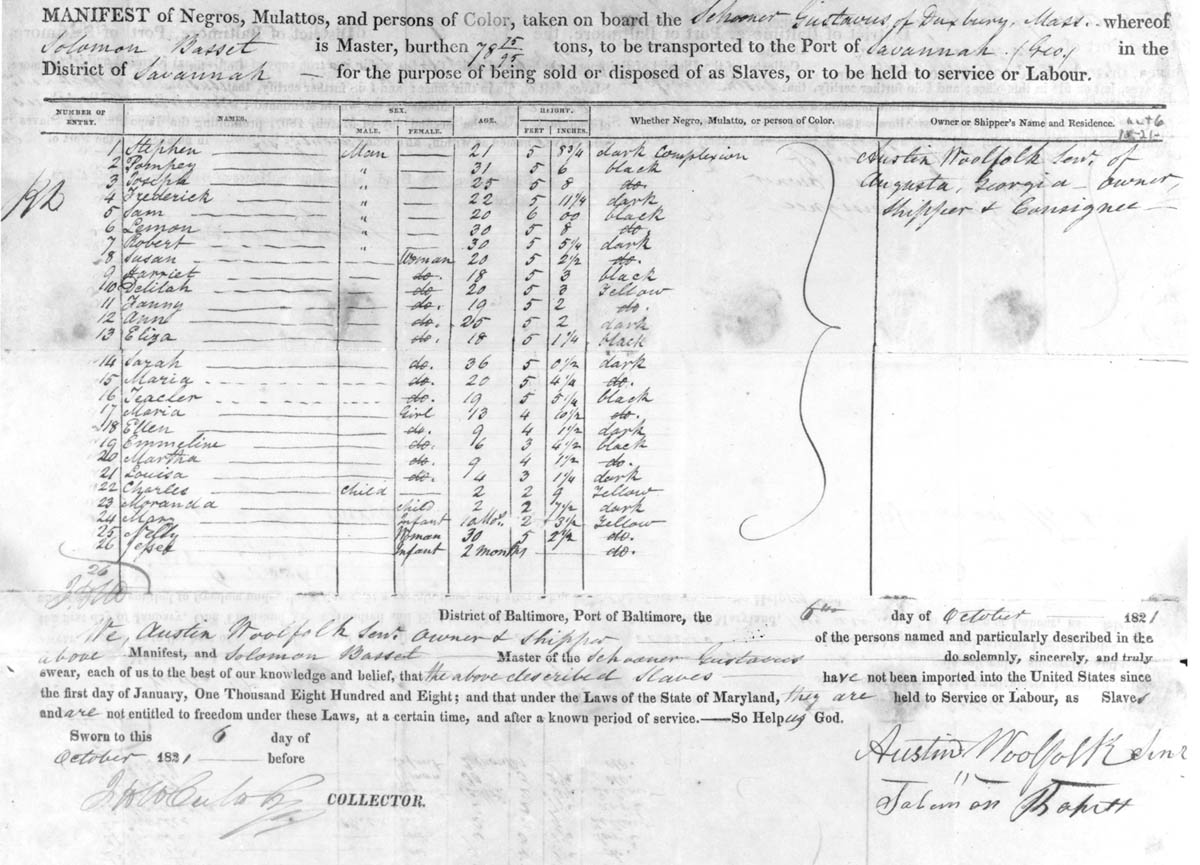 MANIFEST of Negros, Mulattos, and persons of Color, taken on board the Schooner Gustavus of Duxbury, Mass. whereof
Solomon Basset is Master, burthen 78 25/95 tons, to be transported to the Port of Savannah (Geo) in the
District of Savannah — for the purpose of being sold or disposed of as Slaves, or to be held to service or Labour.
NUMBER OF ENTRY. NAMES. SEX. MALE. FEMALE. AGE. HEIGHT. FEET INCHES. Whether Negro, Mulatto, or person of Color. Owner or Shipper's Name and Residence.
1 Stephen Man 21 5 8 3/4 dark Complexion Austin Woolfolk Senr. of
2 Pompey " 31 5 6 black Augusta, Georgia — owner,
3 Joseph " 25 5 8 do. Shipper & Consignee —
4 Frederick " 22 5 11 1/4 dark
5 Sam " 20 6 00 black
6 Lemon " 30 5 8 do
7 Robert " 30 5 5 1/4 dark
8 Susan Woman 20 5 2 1/2 do.
9 Harriet do. 18 5 3 black
10 Delilah do 20 5 3 Yellow
11 Fanny do. 19 5 2 do.
12 Ann do. 25 5 2 dark
13 Eliza do. 18 5 1 1/4 black
14 Sarah do. 36 5 0 1/2 dark
15 Maria do. 20 5 4 1/4 do.
16 Teacher do. 19 5 5 1/4 black
17 Maria Girl 13 4 10 1/2 do.
18 Ellen do. 9 4 1 1/2 dark
19 Emmeline do. 6 3 4 1/2 black
20 Martha do. 9 4 1 1/2 do.
21 Louisa do. 4 3 1 1/4 dark
22 Charles Child 2 2 9 Yellow
23 Moranda Child 2 2 7 1/2 dark
24 Mary Infant 10 Mos. 2 3 1/2 Yellow
25 Nelly Woman 30 5 2 1/2 do.
26 Infant 2 months do.
26
District of Baltimore, Port of Baltimore, the 6th day of October 1821
We, Austin Woolfolk Senr. Owner & Shipper of the persons named and particularly described in the
above Manifest, and Solomon Basset Master of the Schooner Gustavus do solemnly, sincerely, and truly
swear, each of us to the best of our knowledge and belief, that the above described Slaves have not been imported into the United States since
the first day of January, One Thousand Eight Hundred and Eight; and that under the Laws of the State of Maryland, they are held to Service or Labour, as Slaves
and are not entitled to freedom under these Laws, at a certain time, and after a known period of service.—So Help us God.
Sworn to this 6 day of
October 1821 before
COLLECTOR.
Austin Woolfolk Senr
Solomon Basset